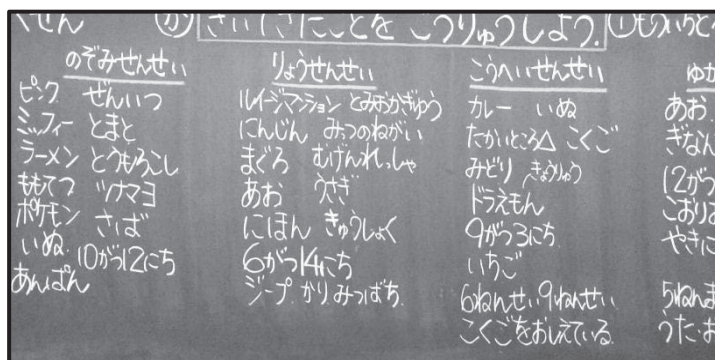 きいてきたことを こうりゅうしよう.
のぞみせんせい
ピンク ぜんいつ
ミッフィー とまと
ラーメン とうもろこし
ももてつ ツナマヨ
ポケモン さば
いぬ 10がつ12にち
あんぱん
りょうせんせい
ルイージマンション とみおかぎゆう
にんじん みつのねがい
まぐろ むげんれっしゃ
あお うさぎ
にほん きゅうしょく
6がつ14にち
ジープ かり みつばち
こうへいせんせい
カレー いぬ
たかいところ△ こくご
みどり きょうりゅう
ドラえもん
9がつ3にち
いちご
6ねんせい9ねんせい
こくごをおしえている
ゆか
あお
ぎなん
12がつ
こおり
やきに
5ねんま
うた・お